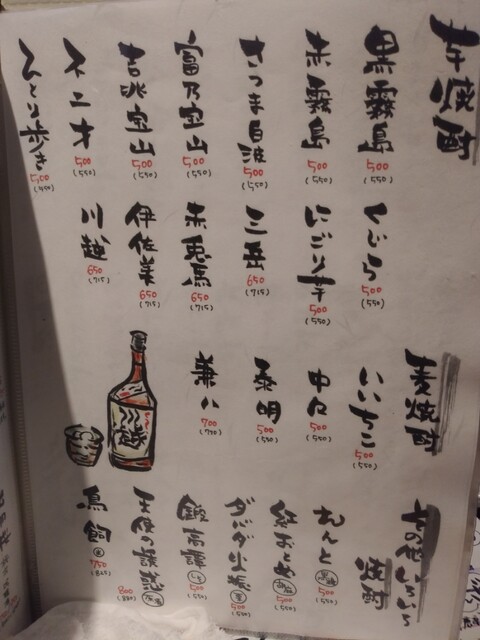 芋焼酎
黒霧島 500 (550)
赤霧島 500 (550)
さつま白波 500 (550)
富乃宝山 500 (550)
吉兆宝山 500 (550)
不二才 500 (550)
ひとり歩き 500 (550)
くじら 500 (550)
にごり芋 500 (550)
三岳 650 (715)
赤兎馬 650 (715)
伊佐美 650 (715)
川越 650 (715)
麦焼酎
いいちこ 500 (550)
中々 500 (550)
泰明 500 (550)
兼八 700 (770)
川越
その他いろいろ焼酎
れんと 黒糖 500 (550)
紅おとめ 胡麻 500 (550)
ダバダ火振 栗 500 (550)
鍛高譚 しそ 500 (550)
天使の誘惑 800 (880)
鳥飼 米 750 (825)